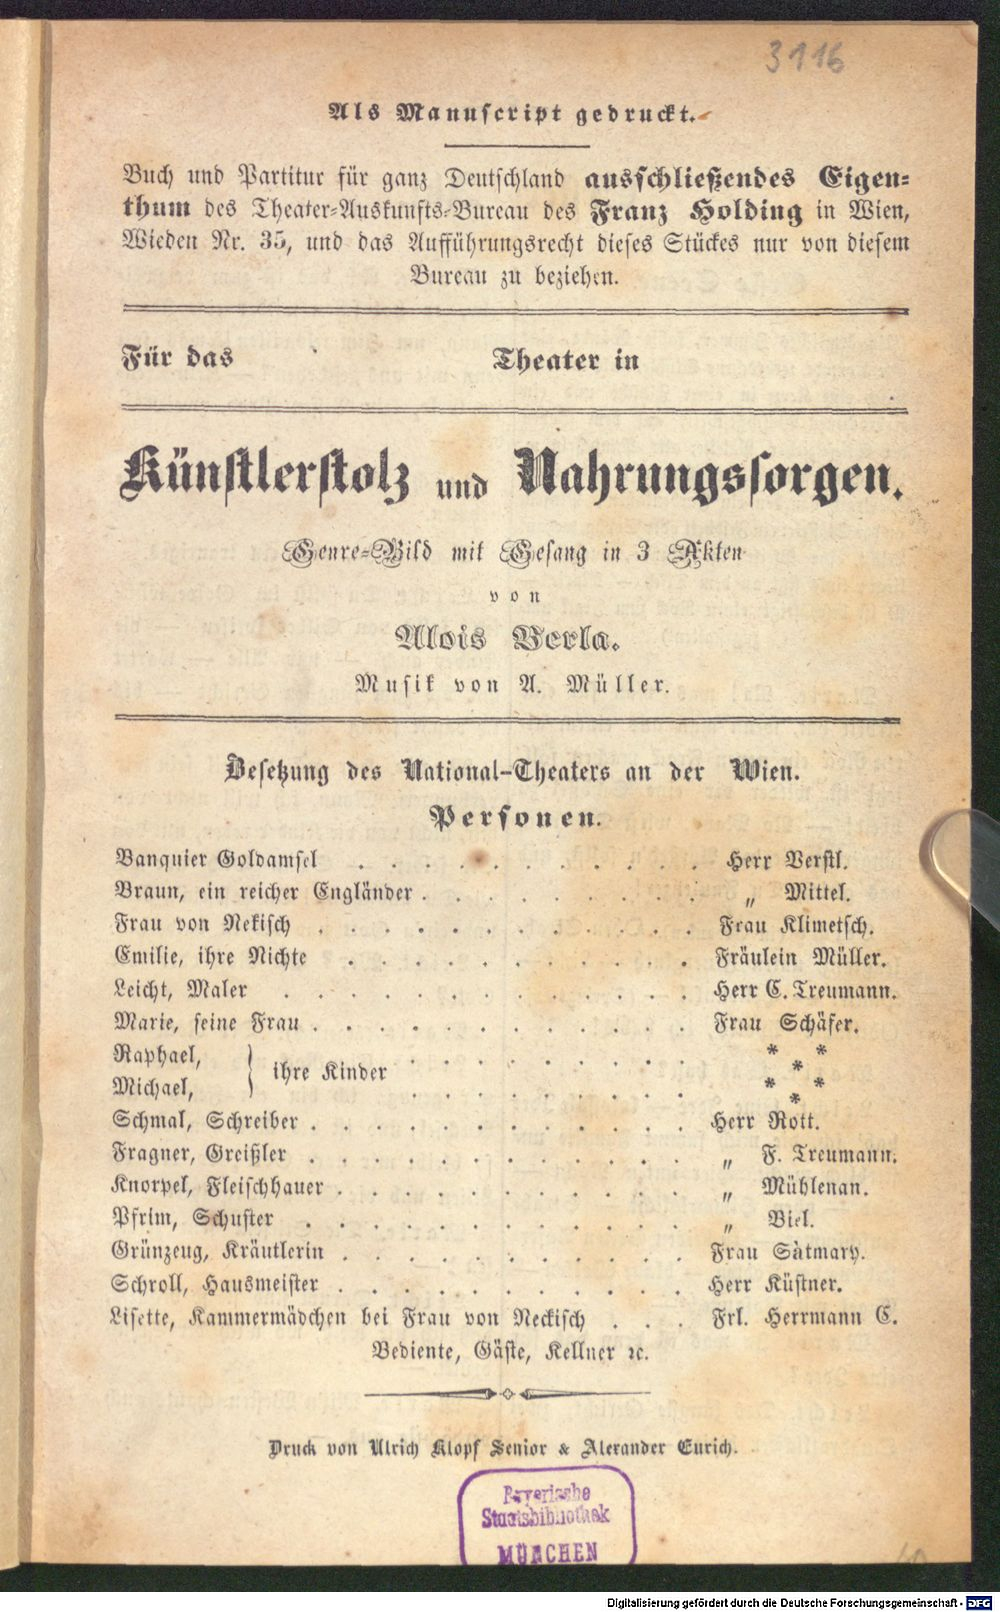 3116
Als Manuscript gedruckt.
Buch und Partitur für ganz Deutschland ausschließendes Eigen-
thum des Theater-Auskunfts-Bureau des Franz Holding in Wien,
Wieden Nr. 35, und das Aufführungsrecht dieses Stückes nur von diesem
Bureau zu beziehen.
Für das Theater in
Künstlerstolz und Nahrungssorgen.
Genre-Bild mit Gesang in 3 Akten
von
Alois Berla.
Musik von A. Müller.
Besetzung des National-Theaters an der Wien.
Personen.
Banquier Goldamsel . . . . . . . . . . Herr Verstl.
Braun, ein reicher Engländer . . . . . . . . „ Mittel.
Frau von Nekisch . . . . . . . . . . Frau Klimetsch.
Emilie, ihre Nichte . . . . . . . . . . Fräulein Müller.
Leicht, Maler . . . . . . . . . . Herr C. Treumann.
Marie, seine Frau . . . . . . . . . . Frau Schäfer.
Raphael, } ihre Kinder . . . . . . . . * * *
Michael, . . . . . . . . * * *
Schmal, Schreiber . . . . . . . . . . Herr Rott.
Fragner, Greißler . . . . . . . . . . „ F. Treumann.
Knorpel, Fleischhauer . . . . . . . . . „ Mühlenan.
Pfrim, Schuster . . . . . . . . . . „ Biel.
Grünzeug, Kräutlerin . . . . . . . . . Frau Sàtmary.
Schroll, Hausmeister . . . . . . . . . Herr Küstner.
Lisette, Kammermädchen bei Frau von Neckisch . . . Frl. Herrmann C.
Bediente, Gäste, Kellner ꝛc.
Druck von Ulrich Klopf Senior & Alexander Eurich.
Bayerische
Staatsbibliothek
MÜNCHEN
Digitalisierung gefördert durch die Deutsche Forschungsgemeinschaft - DFG